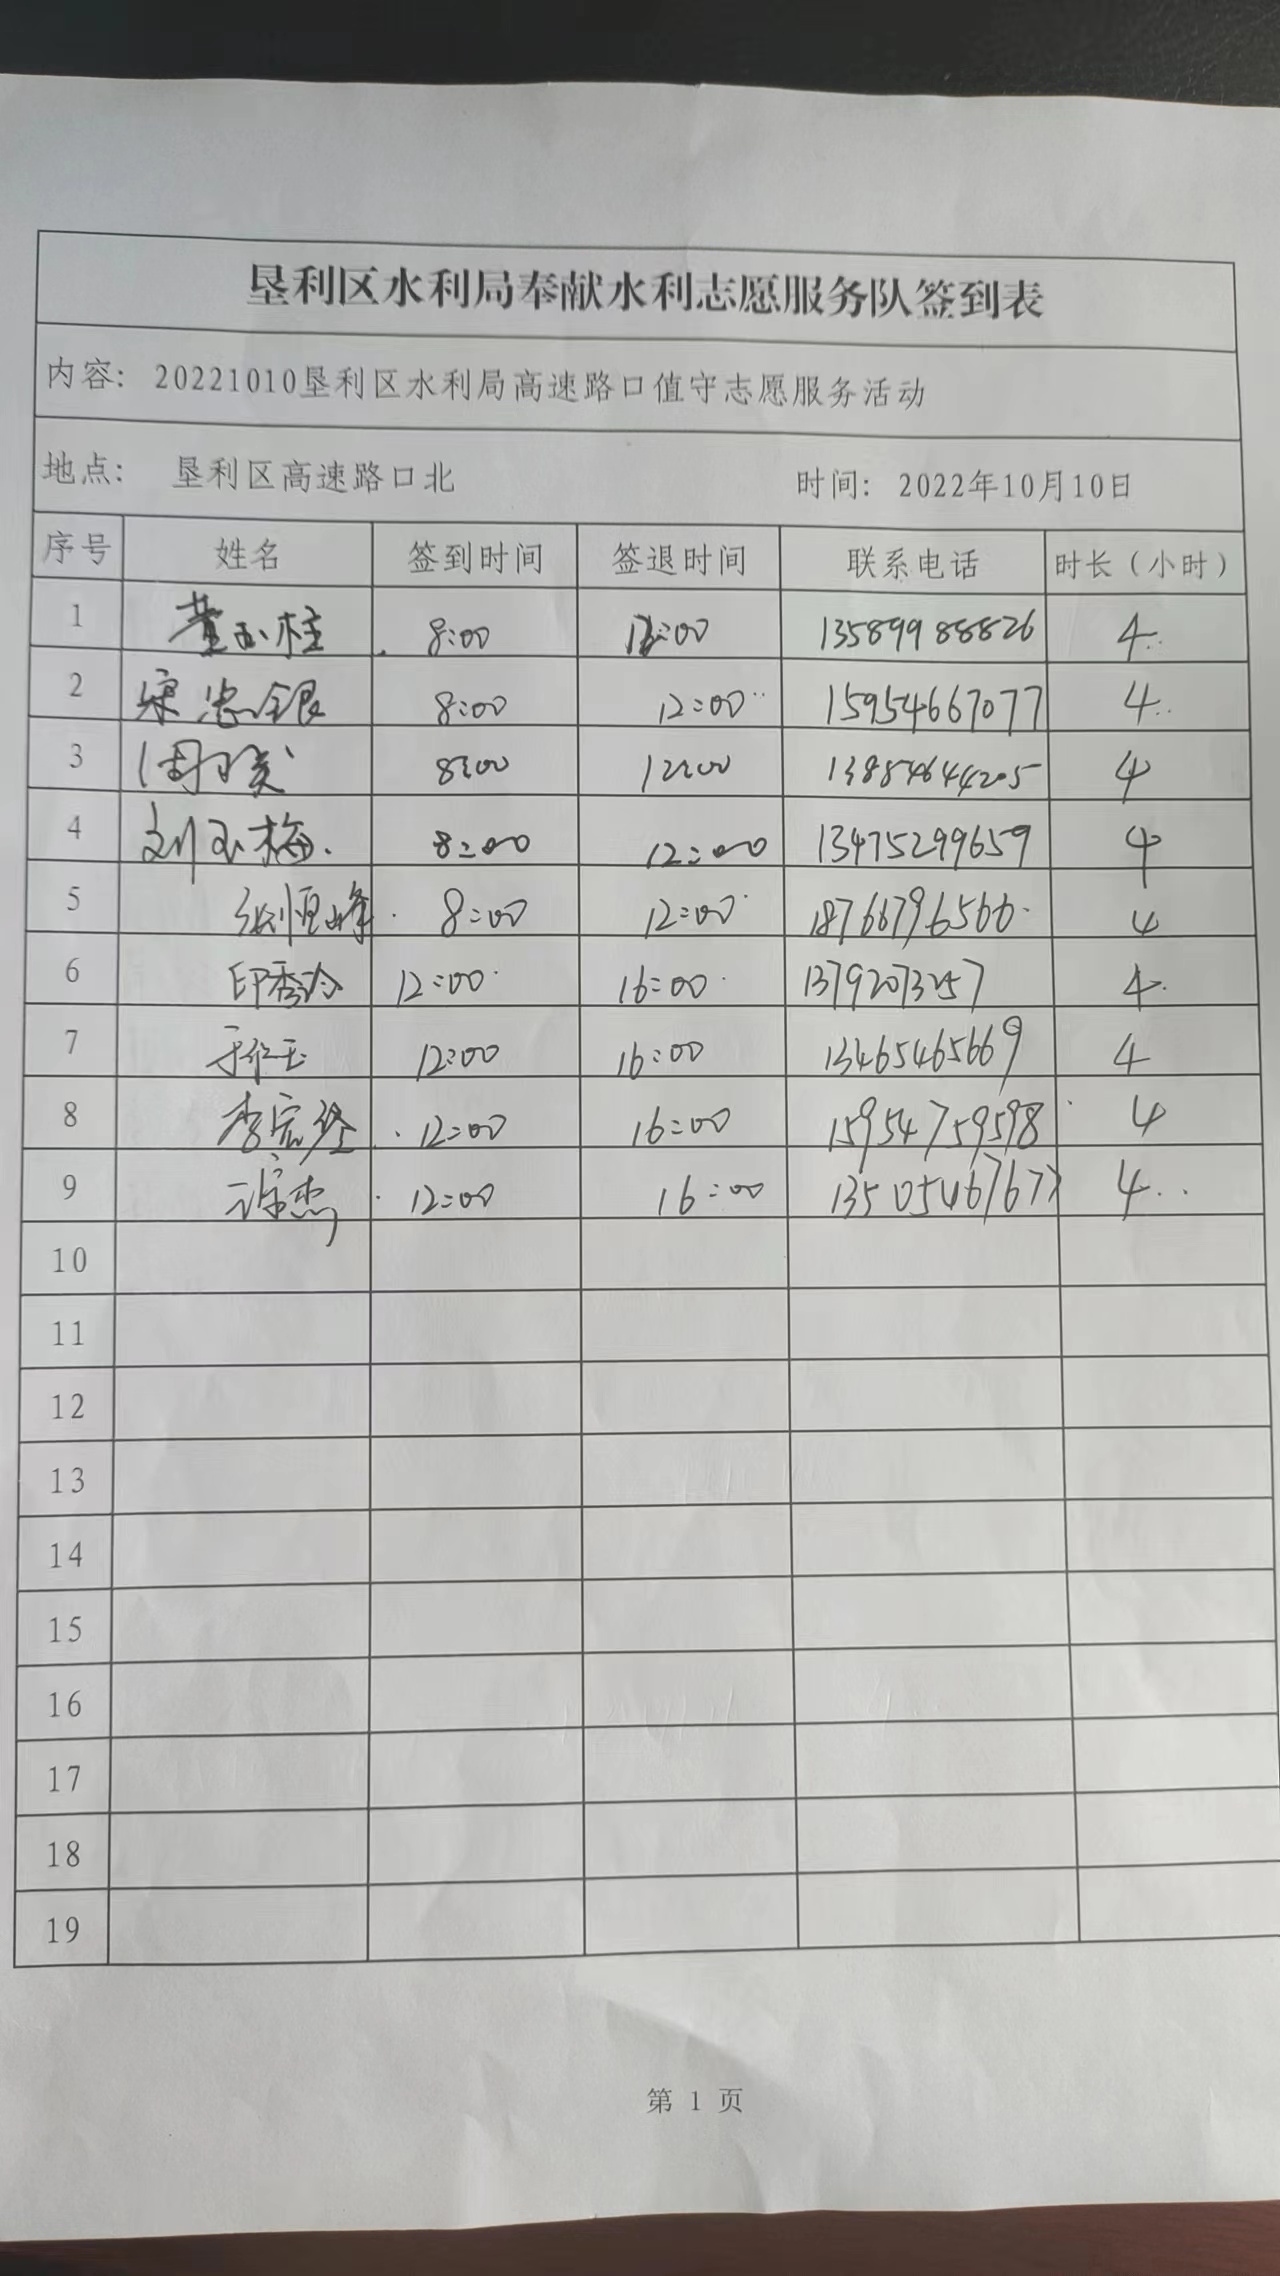 垦利区水利局奉献水利志愿服务队签到表
内容: 20221010垦利区水利局高速路口值守志愿服务活动
地点: 垦利区高速路口北 时间: 2022年10月10日
序号 姓名 签到时间 签退时间 联系电话 时长（小时）
1 董玉柱 8:00 12:00 13589988826 4
2 宋忠银 8:00 12:00 15954667077 4
3 8:00 12:00 13854644205 4
4 刘玉梅 8:00 12:00 13475299659 4
5 张恒峰 8:00 12:00 18766796566 4
6 印秀玲 12:00 16:00 13792073257 4
7 于红玉 12:00 16:00 13465465669 4
8 李宏经 12:00 16:00 15954759598 4
9 12:00 16:00 13505467677 4
10
11
12
13
14
15
16
17
18
19
第 1 页